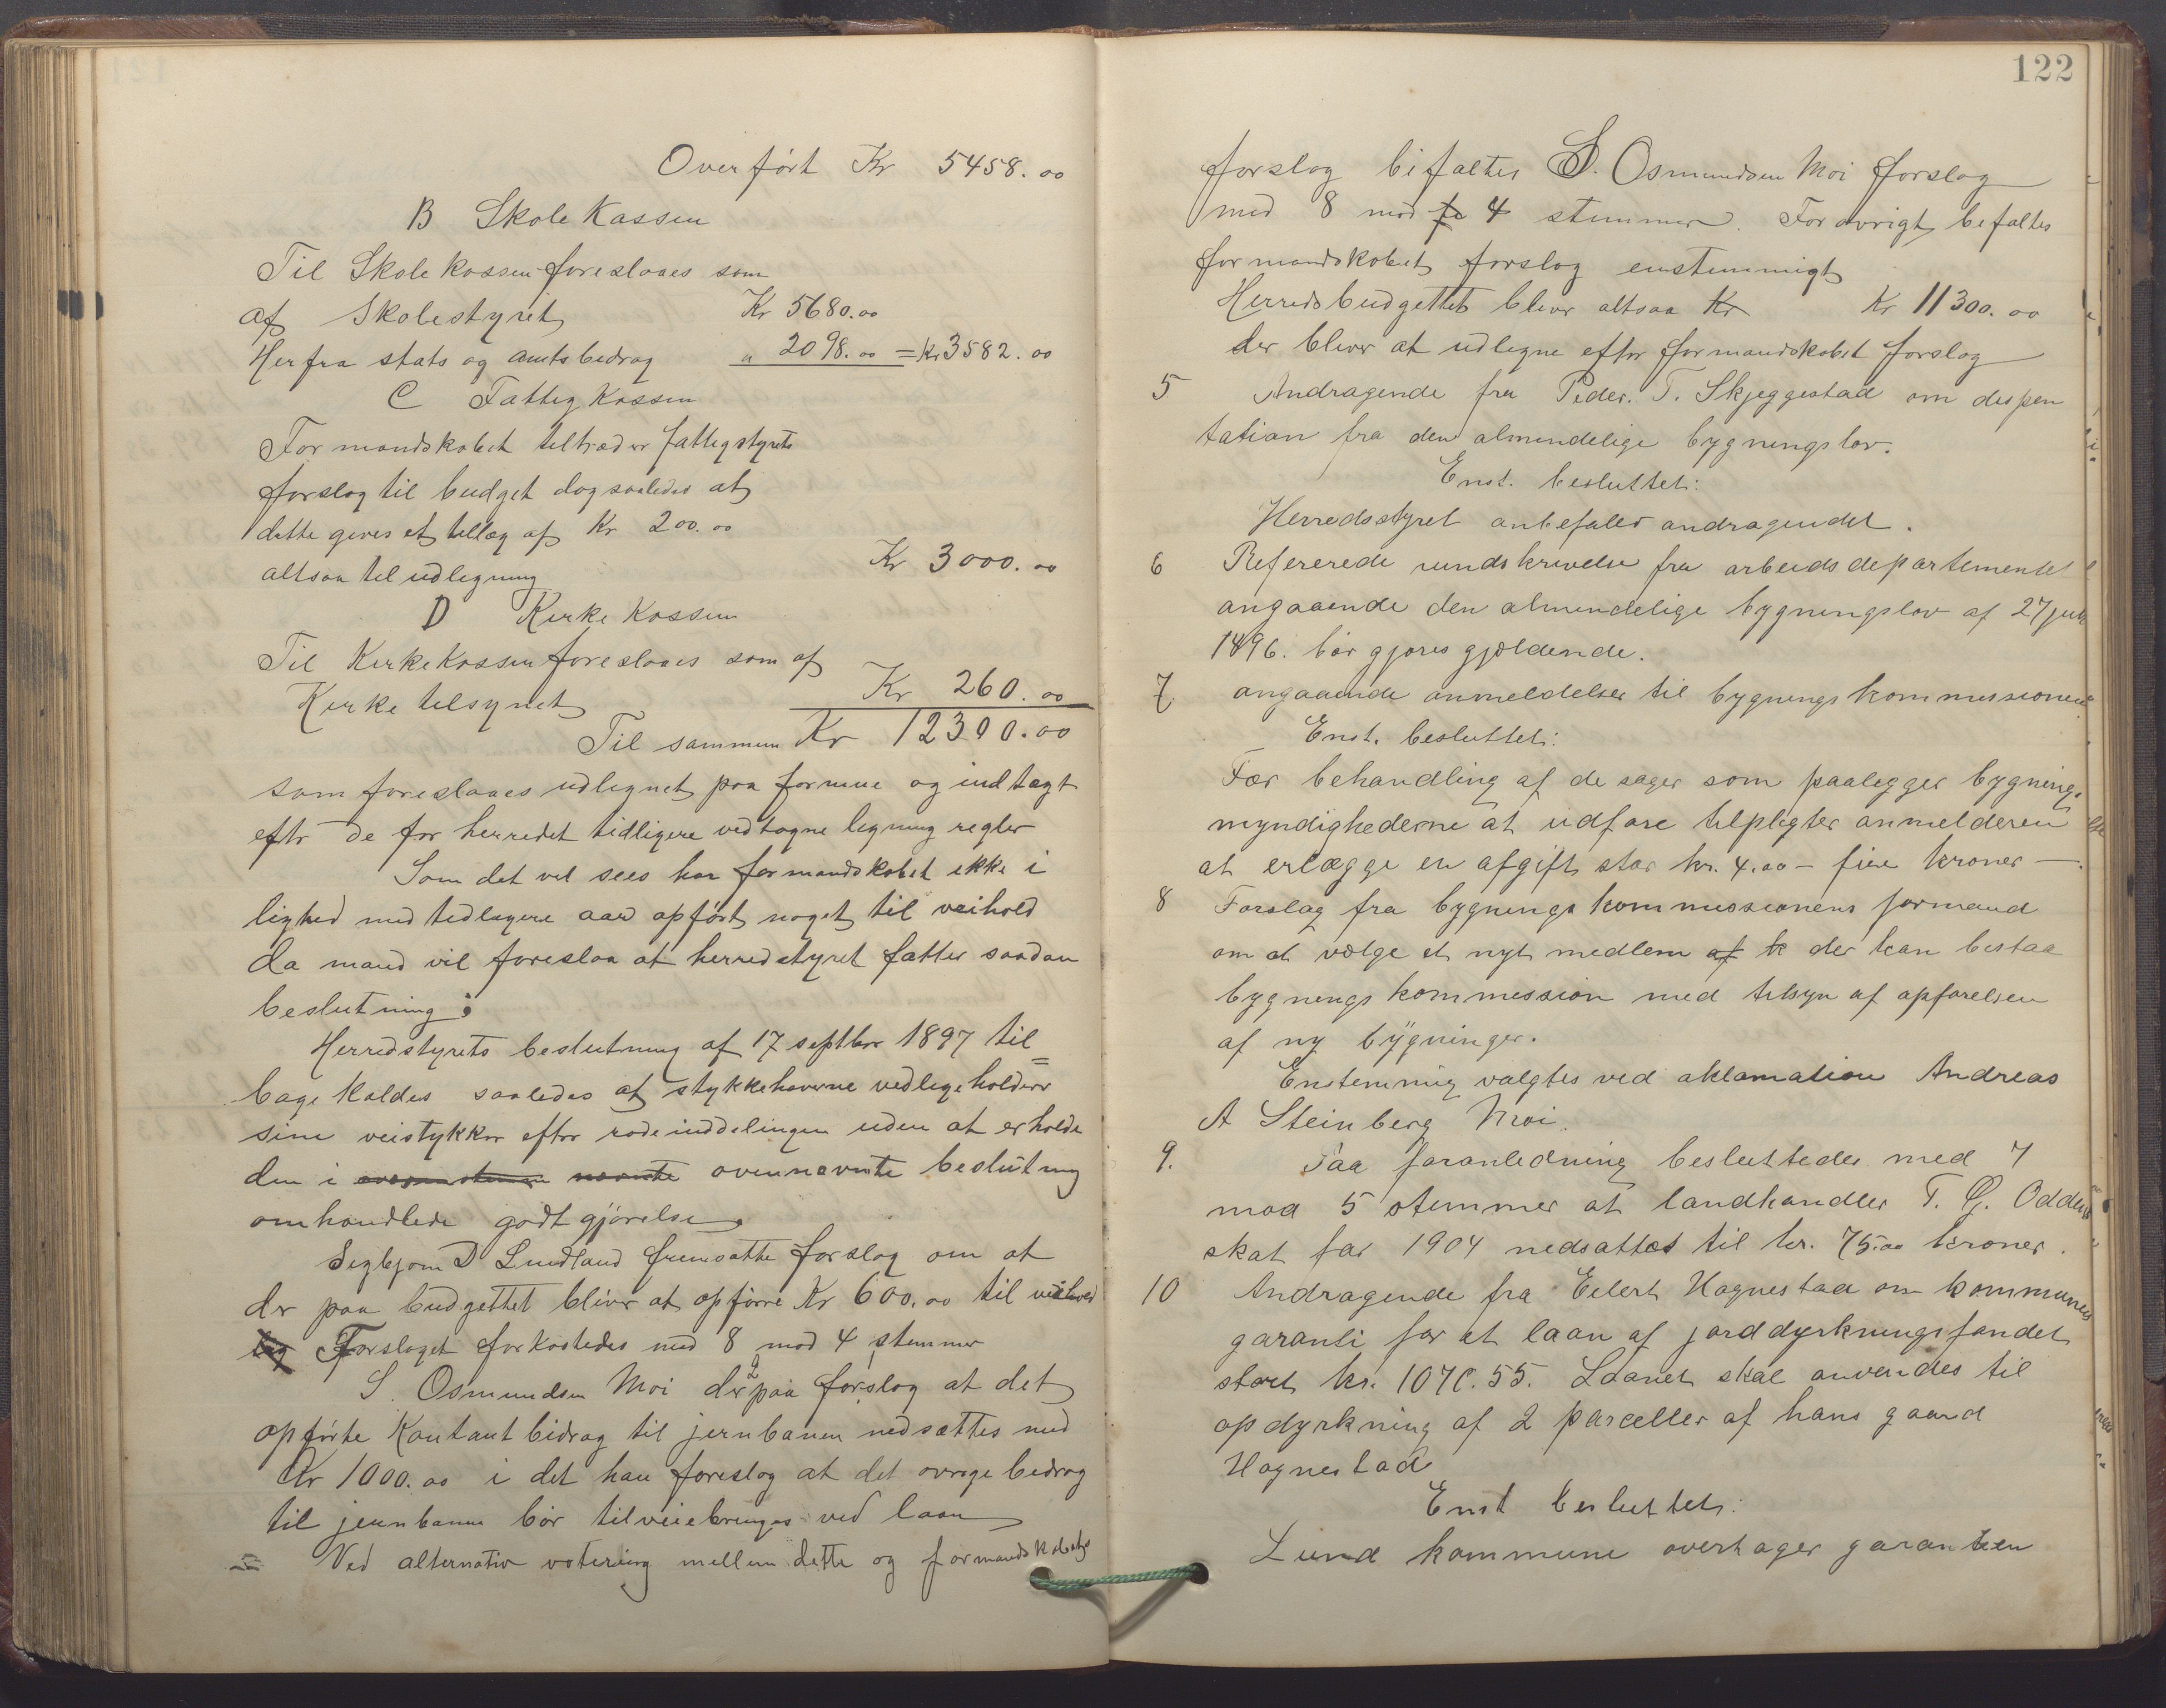 Overført Kr 5458.00
B Skole Kassen
Til Skole kassen foreslaaes som
af Skolestyret Kr 5680.00
Herfra stats og amtsbedrag " 2098.00 = Kr 3582.00
C Fattig Kassen
Formandskabet tiltræder fattigstyrets
forslag til budget dog saaledes at
dette gives et tillæg af Kr 200.00
altsaa til udlegning Kr 3000.00
D Kirke Kassen
Til Kirke Kassen foreslaaes som af
Kirke tilsynet Kr 260.00
Til sammen Kr 12300.00
som foreslaaes udlignet paa formue og indtægt
eftr de for herredet tidligere vedtagne ligning regler
Som det vil sees har formandskabet ikke i
lighed med tidligere aar opført noget til veihold
da mand vil foreslaa at herredstyret fatter saadan
beslutning:
Herredstyrets beslutning af 17 septbr 1897 til=
bage kaldes saaledes at stykkehaverne vedligeholder
sine veistykker efter rodeinddelingen uden at erholde
den i nævnte ovennævnte beslutning
omhandlede godtgjørelse.
Segbjorn D Lundland fremsatte forslag om at
der paa budgettet bliver at opføre Kr 600.00 til veihold
Forslaget forkastedes med 8 mod 4 stemmer
S. Osmundsen Moi derpaa forslag at det
opførte Kontant bidrag til jernbanen nedsættes med
Kr 1000.00 i det han foreslog at det øvrige bedrag
til jernbanen bør tilveiebringes ved laan
Ved alternativ votering mellem dette og formandskabets
122
forslag bifaltes S. Osmundsen Moi forslag
med 8 mod 4 stemmer. Forøvrigt befaltes
formandskabets forslag enstemmigt
Herredsbudgettet bliver altsaa Kr Kr 11300.00
der bliver at udligne efter formandskabet forslag
5 Andragende fra Peder. T. Skjeggestad om dispen
tation fra den almindelige bygningslov.
Enst. besluttet:
Herredsstyret anbefaler andragendet.
6 Refererede rundskrivelse fra arbeidsdepartementet
angaaende den almindelige bygningslov af 27 juni
1896. bør gjøres gjældende.
7. angaaende anmeldelser til bygningskommissionen
Enst. besluttet:
For behandling af de sager som paalegger bygnings
myndighederne at udføre tilpligtes anmelderen
at erlægge en afgift stor kr. 4.00 - fire kroner -.
8 Forslag fra bygningskommissionens formand
om at vælge et nyt medlem af k der kan bestaa
bygningskommission med tilsyn af opførelsen
af ny bygninger.
Enstemmig valgtes ved aklamation Andreas
A Steinberg Moi.
9. Paa foranledning besluttedes med 7
mod 5 stemmer at landhandler T. G. Oddens
skat for 1904 nedsattes til kr. 75.00 kroner.
10 Andragende fra Eilert Hagnestad om kommunens
garanti for et laan af jorddyrkningsfondet
stort kr. 1070.55. Laanet skal anvendes til
opdyrkning af 2 parceller af hans gaard
Hagnestad
Enst besluttet:
Lund kommune overtager garantien